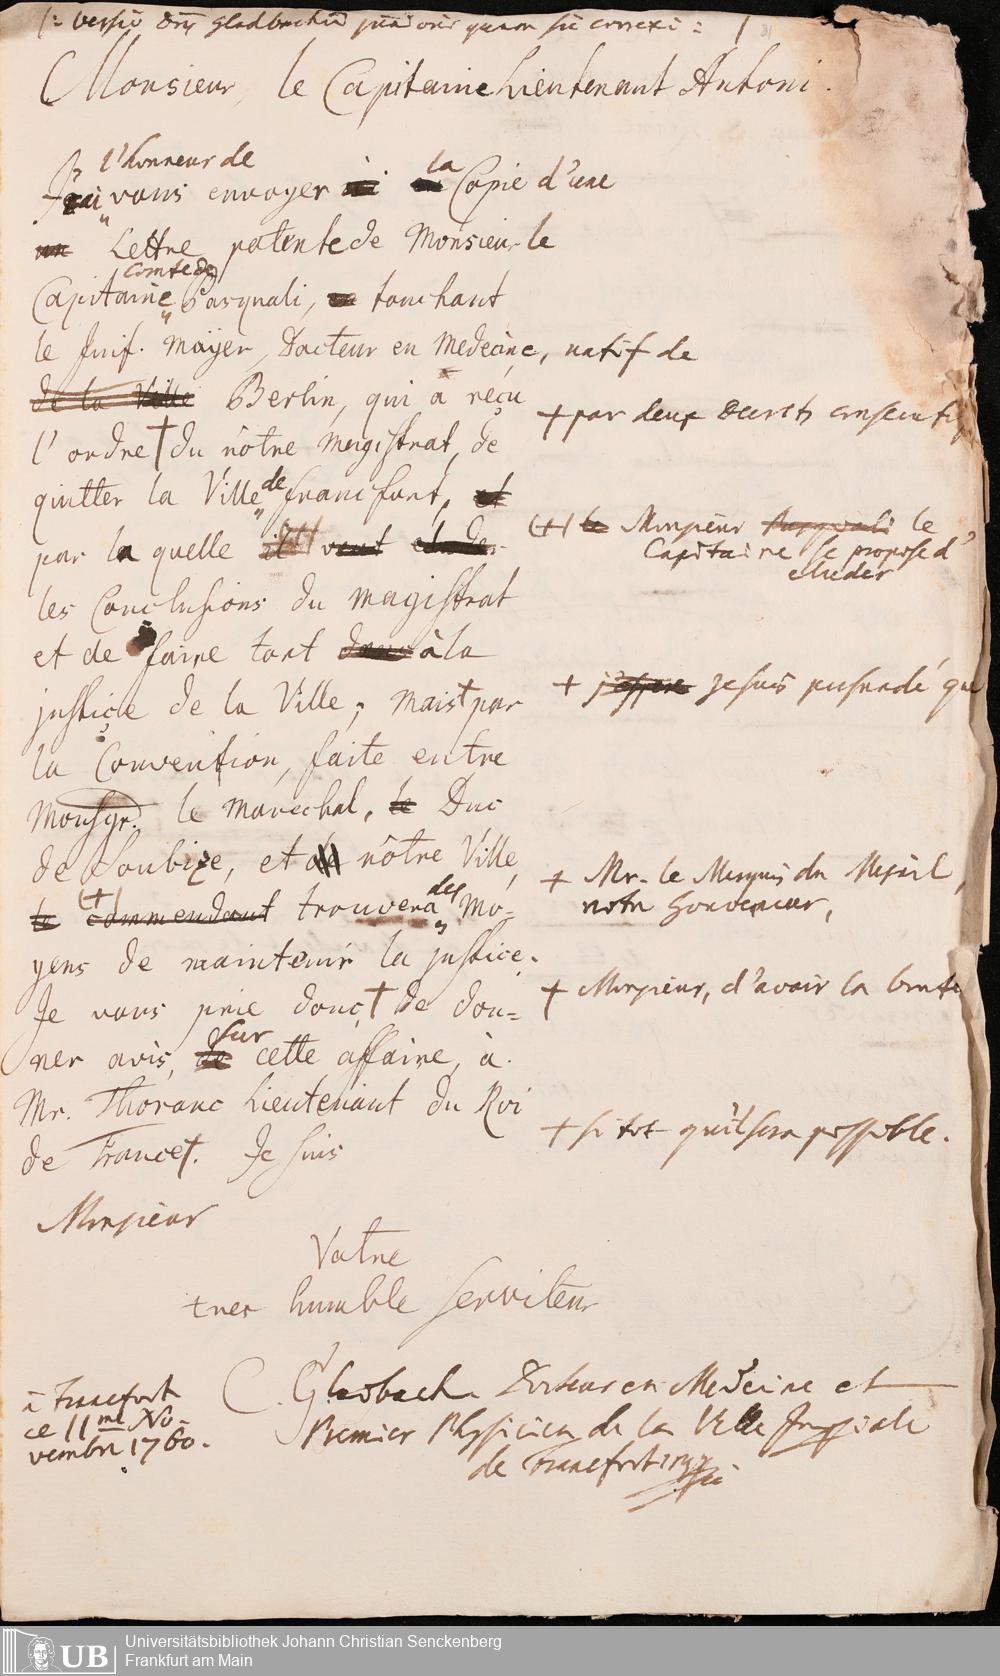 /: Versio Dni Gladbachii junioris quam sic correxi :/
Monsieur, le Capitaine Lieutenant Antoni.
l'honneur de
J'ai vous envoyer la Copie d'une
un Lettre patente de Monsieur le
Comte de
Capitaine Pasquali, touchant
le Juif. Mayer, Docteur en Medecine, natif de
de la Ville Berlin, qui a reçu
+ par deux Decrets consecutifs
l'ordre + du nôtre magistrat, de
quitter la Ville de francfort, et
par la quelle il (++) veut eluder
(++) le Monsieur Pasquali le
Capitaine se propose d'
eluder
les Conclusions du magistrat
et de faire tort dans à la
+ j'espere je suis persuadé que
justice de la Ville; mais + par
la Convention, faite entre
Monsgr. le Marechal, le Duc
de Soubize, et nôtre Ville,
+ Mr. le Marquis du Mesnil,
notre Gouverneur,
le (+) Commendant trouvera des Mo-
yens de maintenir la justice.
+ Monsieur, d'avoir la bonté
Je vous prie donc + de don-
ner avis, de sur cette affaire, à
Mr. Thoranc Lieutenant du Roi
+ si tot qu'il sera possible.
de France +. Je suis
Monsieur
Votre
tres humble serviteur
C. Gladbach Docteur en Medecine et
Premier Physicien de la Ville Imperiale
de Francfort
à Francfort
ce 11me No-
vembre 1760.
UB
Universitätsbibliothek Johann Christian Senckenberg
Frankfurt am Main